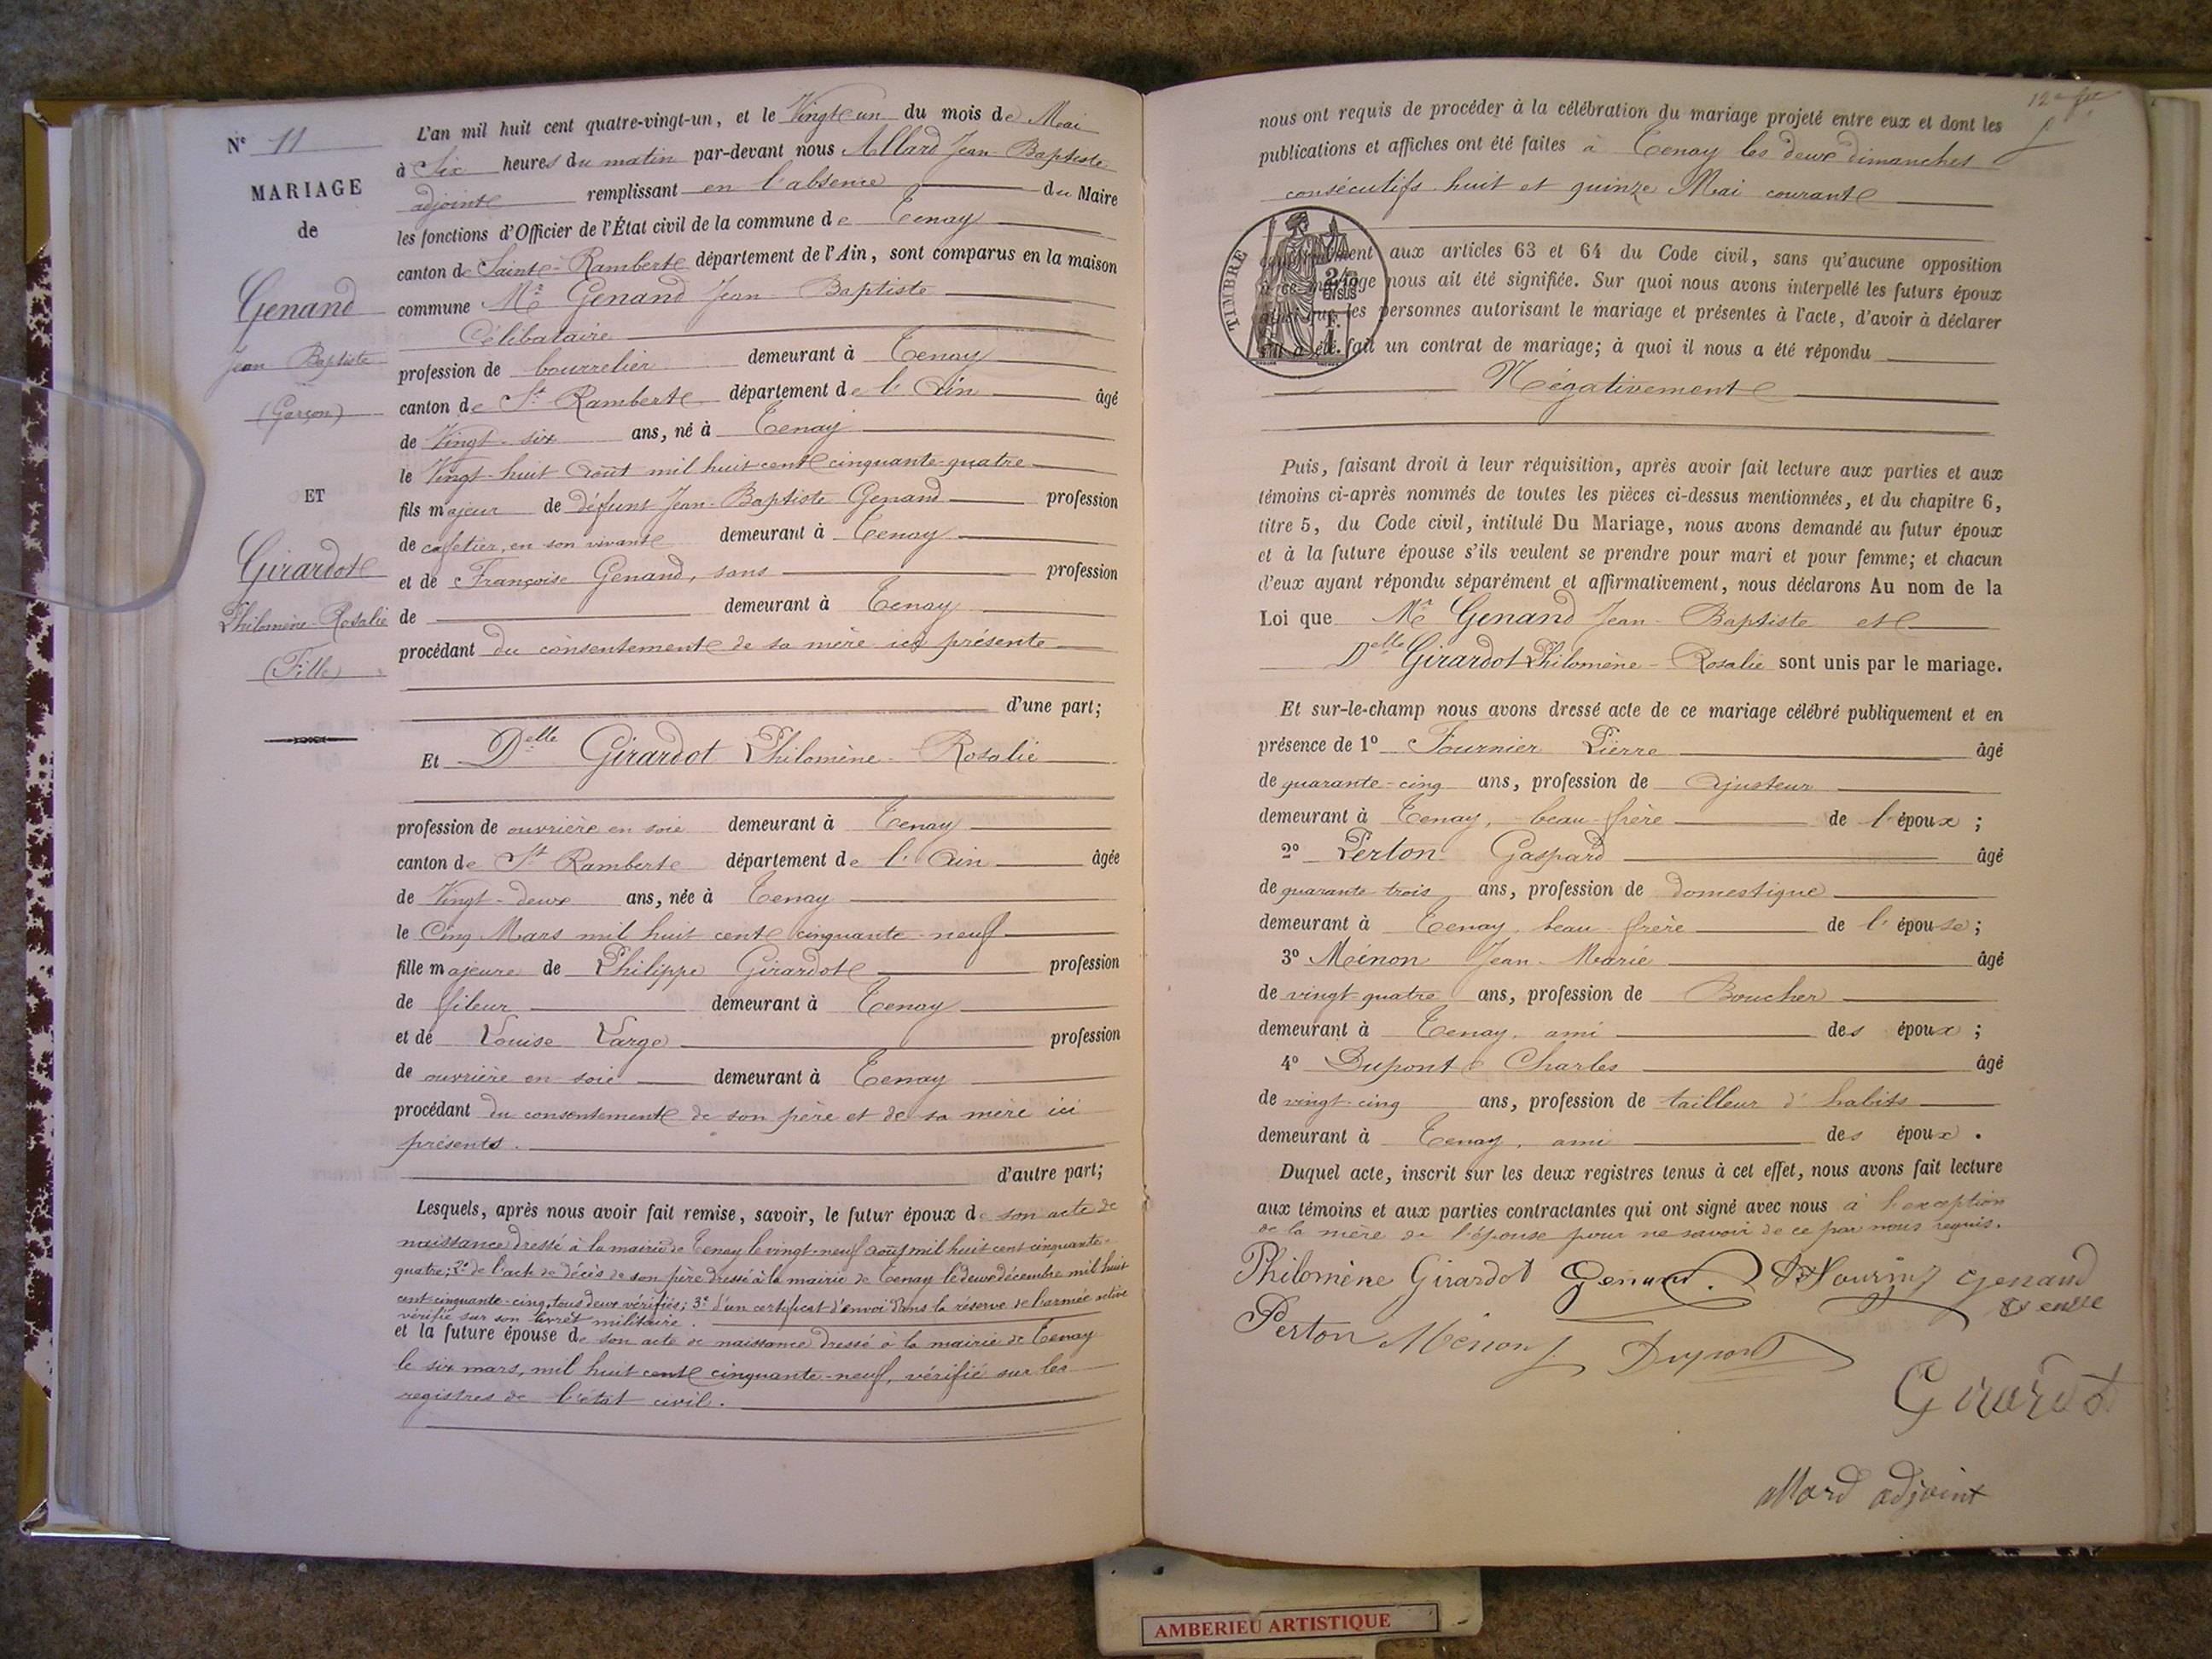 N° 11
MARIAGE
de
Genand
Jean Baptiste
(Garçon)
ET
Girardot
Philomène-Rosalie
(Fille)
L'an mil huit cent quatre-vingt-un, et le Vingt un du mois de Mai
à Six heures du matin par-devant nous Allard Jean-Baptiste
adjoint remplissant en l'absence du Maire
les fonctions d'Officier de l'État civil de la commune de Tenay
canton de Saint-Rambert département de l'Ain, sont comparus en la maison
commune Mr Genand Jean-Baptiste
Célibataire
profession de bourrelier demeurant à Tenay
canton de St Rambert département de l'Ain âgé
de Vingt-six ans, né à Tenay
le Vingt-huit Août mil huit cent cinquante-quatre
fils majeur de défunt Jean-Baptiste Genand profession
de cafetier, en son vivant demeurant à Tenay
et de Françoise Genand, sans profession
de demeurant à Tenay
procédant du consentement de sa mère ici présente
d'une part;
Et Delle Girardot Philomène-Rosalie
profession de ouvrière en soie demeurant à Tenay
canton de St Rambert département de l'Ain âgée
de Vingt-deux ans, née à Tenay
le Cinq Mars mil huit cent cinquante-neuf
fille majeure de Philippe Girardot profession
de fileur demeurant à Tenay
et de Louise Large profession
de ouvrière en soie demeurant à Tenay
procédant du consentement de son père et de sa mère ici
présents.
d'autre part;
Lesquels, après nous avoir fait remise, savoir, le futur époux de son acte de
naissance dressé à la mairie de Tenay le vingt-neuf août mil huit cent cinquante-
quatre; 2° de l'acte de décès de son père dressé à la mairie de Tenay le deux décembre mil huit
cent cinquante-cinq, tous deux vérifiés; 3° d'un certificat d'envoi dans la réserve de l'armée active
vérifié sur son livret militaire.
et la future épouse de son acte de naissance dressé à la mairie de Tenay
le six mars, mil huit cent cinquante-neuf, vérifié sur les
registres de l'état civil.
12e
nous ont requis de procéder à la célébration du mariage projeté entre eux et dont les
publications et affiches ont été faites à Tenay les deux dimanches
consécutifs huit et quinze Mai courant
TIMBRE
conformément aux articles 63 et 64 du Code civil, sans qu'aucune opposition
à ce mariage nous ait été signifiée. Sur quoi nous avons interpellé les futurs époux
ainsi que les personnes autorisant le mariage et présentes à l'acte, d'avoir à déclarer
s'il a été fait un contrat de mariage; à quoi il nous a été répondu
Négativement
Puis, faisant droit à leur réquisition, après avoir fait lecture aux parties et aux
témoins ci-après nommés de toutes les pièces ci-dessus mentionnées, et du chapitre 6,
titre 5, du Code civil, intitulé Du Mariage, nous avons demandé au futur époux
et à la future épouse s'ils veulent se prendre pour mari et pour femme; et chacun
d'eux ayant répondu séparément et affirmativement, nous déclarons Au nom de la
Loi que Mr Genand Jean-Baptiste et
Delle Girardot Philomène-Rosalie sont unis par le mariage.
Et sur-le-champ nous avons dressé acte de ce mariage célébré publiquement et en
présence de 1° Fournier Pierre âgé
de quarante-cinq ans, profession de Ajusteur
demeurant à Tenay, beau-frère de l'époux;
2° Perton Gaspard âgé
de quarante trois ans, profession de domestique
demeurant à Tenay, beau-frère de l'épouse;
3° Menon Jean-Marie âgé
de vingt-quatre ans, profession de Boucher
demeurant à Tenay, ami des époux;
4° Dupont Charles âgé
de vingt-cinq ans, profession de tailleur d'habits
demeurant à Tenay, ami des époux.
Duquel acte, inscrit sur les deux registres tenus à cet effet, nous avons fait lecture
aux témoins et aux parties contractantes qui ont signé avec nous à l'exception
de la mère de l'épouse pour ne savoir de ce par nous requis.
Philomène Girardot Genand. Fournier Genand
Perton Menon Dupont
Girardot
allard adjoint
AMBERIEU ARTISTIQUE